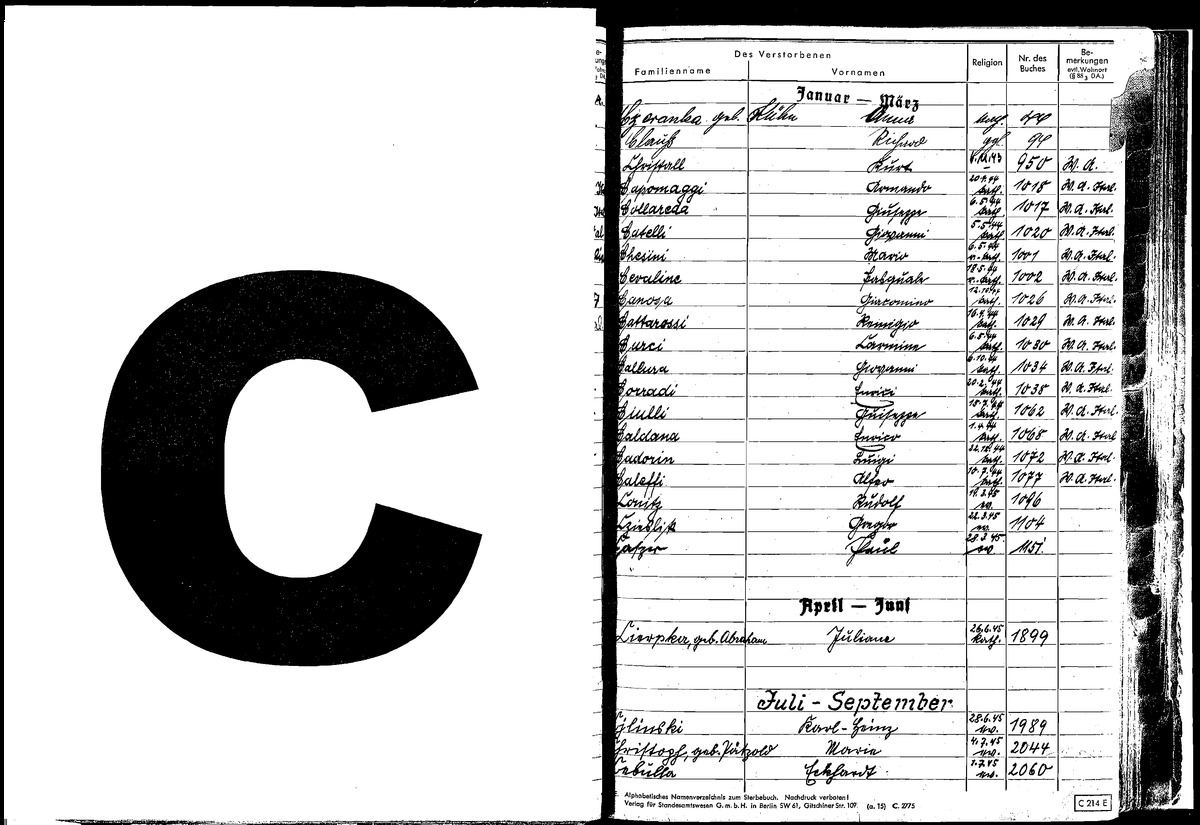 C
Des Verstorbenen
Familienname Vornamen Religion Nr. des Buches Bemerkungen evtl. Wohnort (§ 88 3 DA.)
Januar — März
geb. Kühn Anna
Clauß Richard 94
Christall Kurt 950 W. d.
Capomaggi Armando 20.9.44 kath. 1018 W. d. Ital.
Collareda Giuseppe 6.5.44 kath. 1017 W. d. Ital.
Catelli Giovanni 5.5.44 kath. 1020 W. d. Ital.
Chesini Mario 6.5.44 r.-kath. 1001 W. d. Ital.
Cevaline Pasquale 18.5.44 r.-kath. 1002 W. d. Ital.
Canosa Giacomino 12.10.44 kath. 1026 W. d. Ital.
Cattarossi Remigio 16.4.44 kath. 1029 W. d. Ital.
Curci Carmine 6.5.44 kath. 1030 W. d. Ital.
Callura Giovanni 6.10.44 kath. 1034 W. d. Ital.
Corradi Enrici 20.2.44 kath. 1038 W. d. Ital.
Ciulli Guiseppe 18.7.44 kath. 1062 W. d. Ital.
Caldana Enrico 1.4.44 kath. 1068 W. d. Ital
Cadorin Luigi 22.12.44 kath. 1072 W. d. Ital.
Caleffi Alfeo 10.7.44 kath. 1077 W. d. Ital.
Rudolf 19.3.45 ev. 1096
Gregor 22.3.45 ev. 1104
Paul 28.3.45 ev. 1151
April — Juni
geb. Abraham Juliane 26.6.45 Kath. 1899
Juli - September
Cylinski Karl-Heinz 28.6.45 ev. 1989
Christoph, geb. Pätzold Marie 4.7.45 ev. 2044
Cebulla Eckhardt 1.7.45 ev. 2060
Alphabetisches Namenverzeichnis zum Sterbebuch. Nachdruck verboten!
Verlag für Standesamtswesen G. m. b. H. in Berlin SW 61, Gitschiner Str. 109. (a. 15) C. 2775
C 214 E